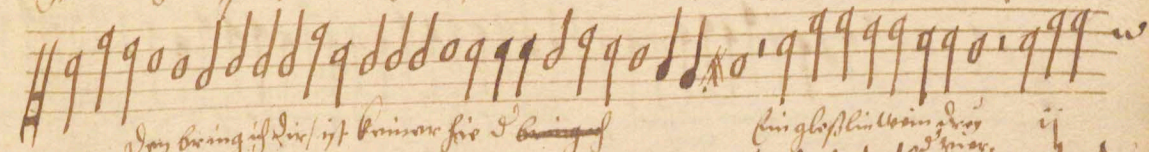 Den bring ich dir / ist keiner hie d bring ich Ein gleßlin wein drey ij